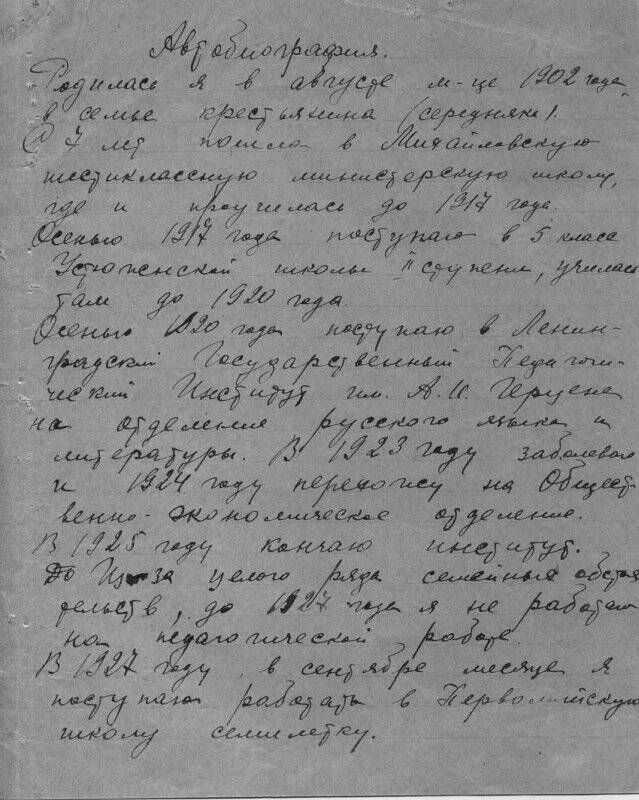 Автобиография.
Родилась я в августе м-це 1902 года,
в семье крестьянина (середняка).
С 7 лет пошла в Михайловскую
шестиклассную министерскую школу,
где и проучилась до 1917 года.
Осенью 1917 года поступаю в 5 класс
Устюженской школы II ступени, училась
там до 1920 года.
Осенью 1920 года поступаю в Ленин-
градский Государственный Педагоги-
ческий Институт им. А.И. Герцена
на отделение русского языка и
литературы. В 1923 году заболеваю
и 1924 году перехожу на Общест-
венно-экономическое отделение.
В 1925 году кончаю институт.
Из-за целого ряда семейных обстоя
тельств, до 1927 года я не работаю
на педагогической работе.
В 1927 году, в сентябре месяце я
поступаю работать в Первомайскую
школу семилетку.